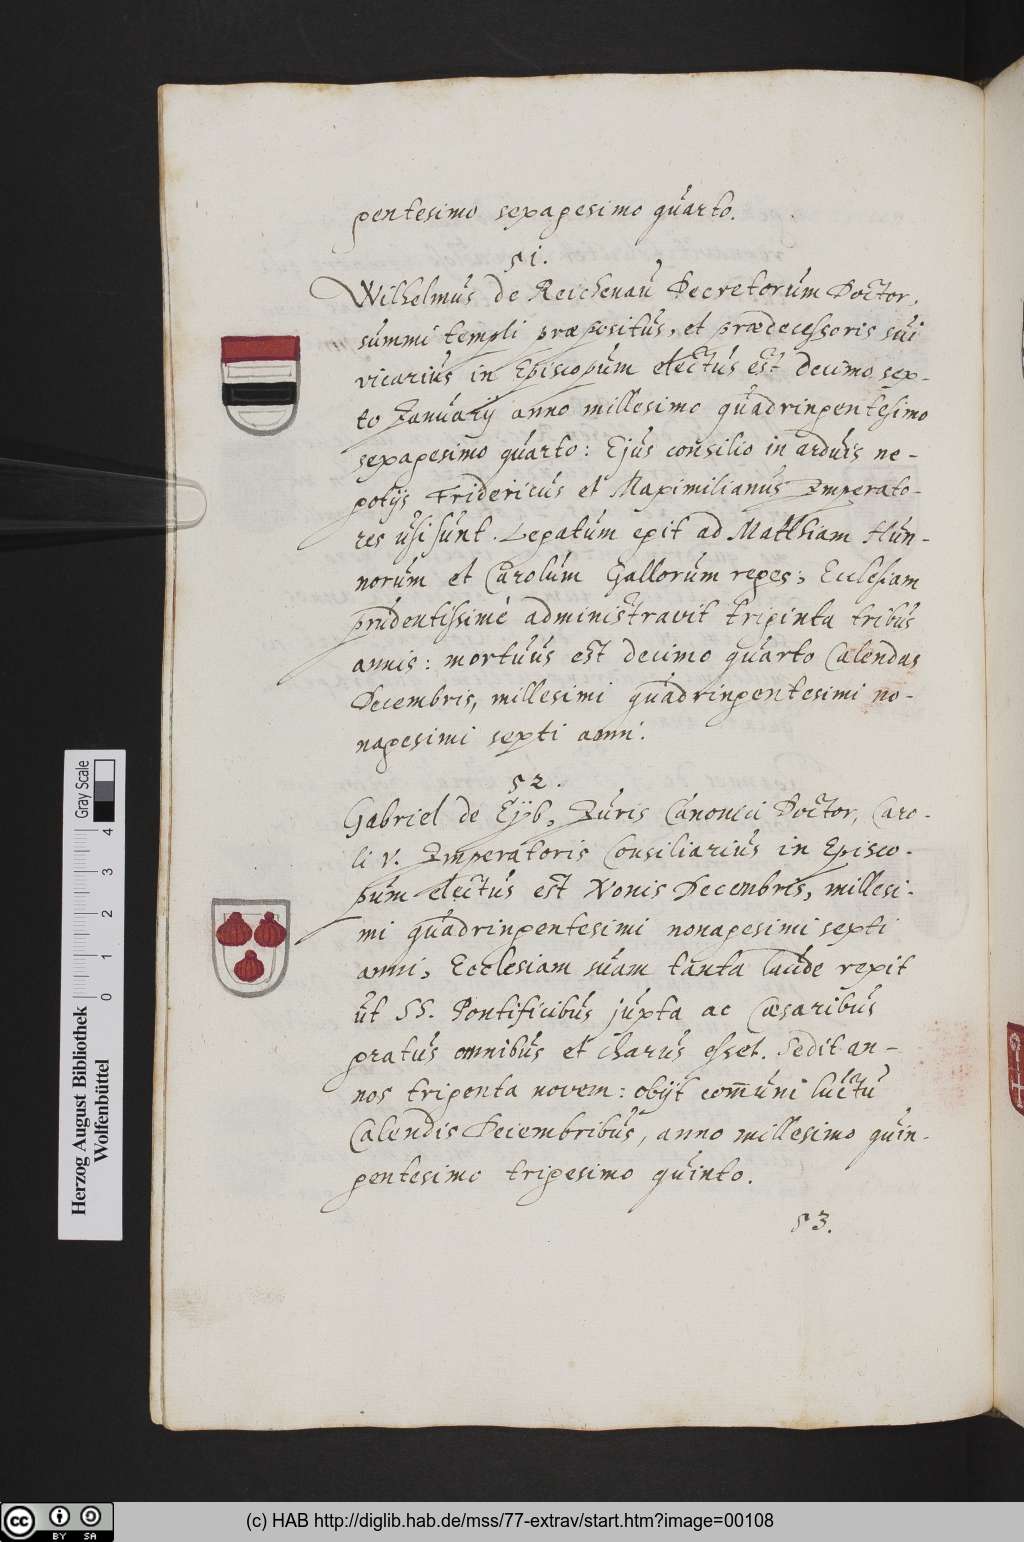 gentesimo sexagesimo quarto.
51.
Wilhelmus de Reichenau Decretorum Doctor,
summi templi præpositus, et prædecessoris sui
vicarius in Episcopum electus est decimo sex-
to Januarij anno millesimo quadringentesimo
sexagesimo quarto: Ejus consilio in arduis ne-
gotijs Fridericus et Maximilianus Imperato-
res usi sunt. Legatum egit ad Matthiam Hun-
norum et Carolum Gallorum reges; Ecclesiam
prudentissimè administravit triginta tribus
annis: mortuus est decimo quarto Calendas
Decembris, millesimi quadringentesimi no-
nagesimi septi anni.
52.
Gabriel de Eyb, Juris Canonici Doctor, Caro-
li V. Imperatoris Consiliarius in Episco-
pum electus est Nonis Decembris, millesi-
mi quadringentesimi nonagesimi septi
anni, Ecclesiam suam tanta laude regit
ut SS. Pontificibus juxta ac Cæsaribus
gratus omnibus et charus esset. Sedit an-
nos trigenta novem: obijt com̄uni luctu
Calendis Decembribus, anno millesimo quin-
gentesimo trigesimo quinto.
53.
Gray Scale
0 1 2 3 4
Herzog August Bibliothek
Wolfenbüttel
cc BY SA
(c) HAB http://diglib.hab.de/mss/77-extrav/start.htm?image=00108